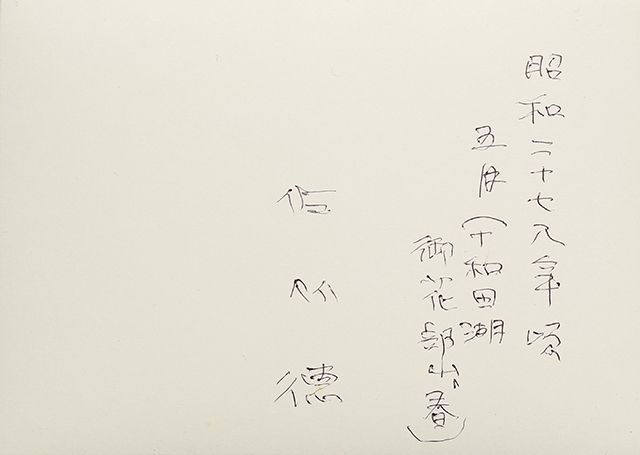 昭和二十七八年頃
五月(十和田湖
御花部山、春)
佐竹徳